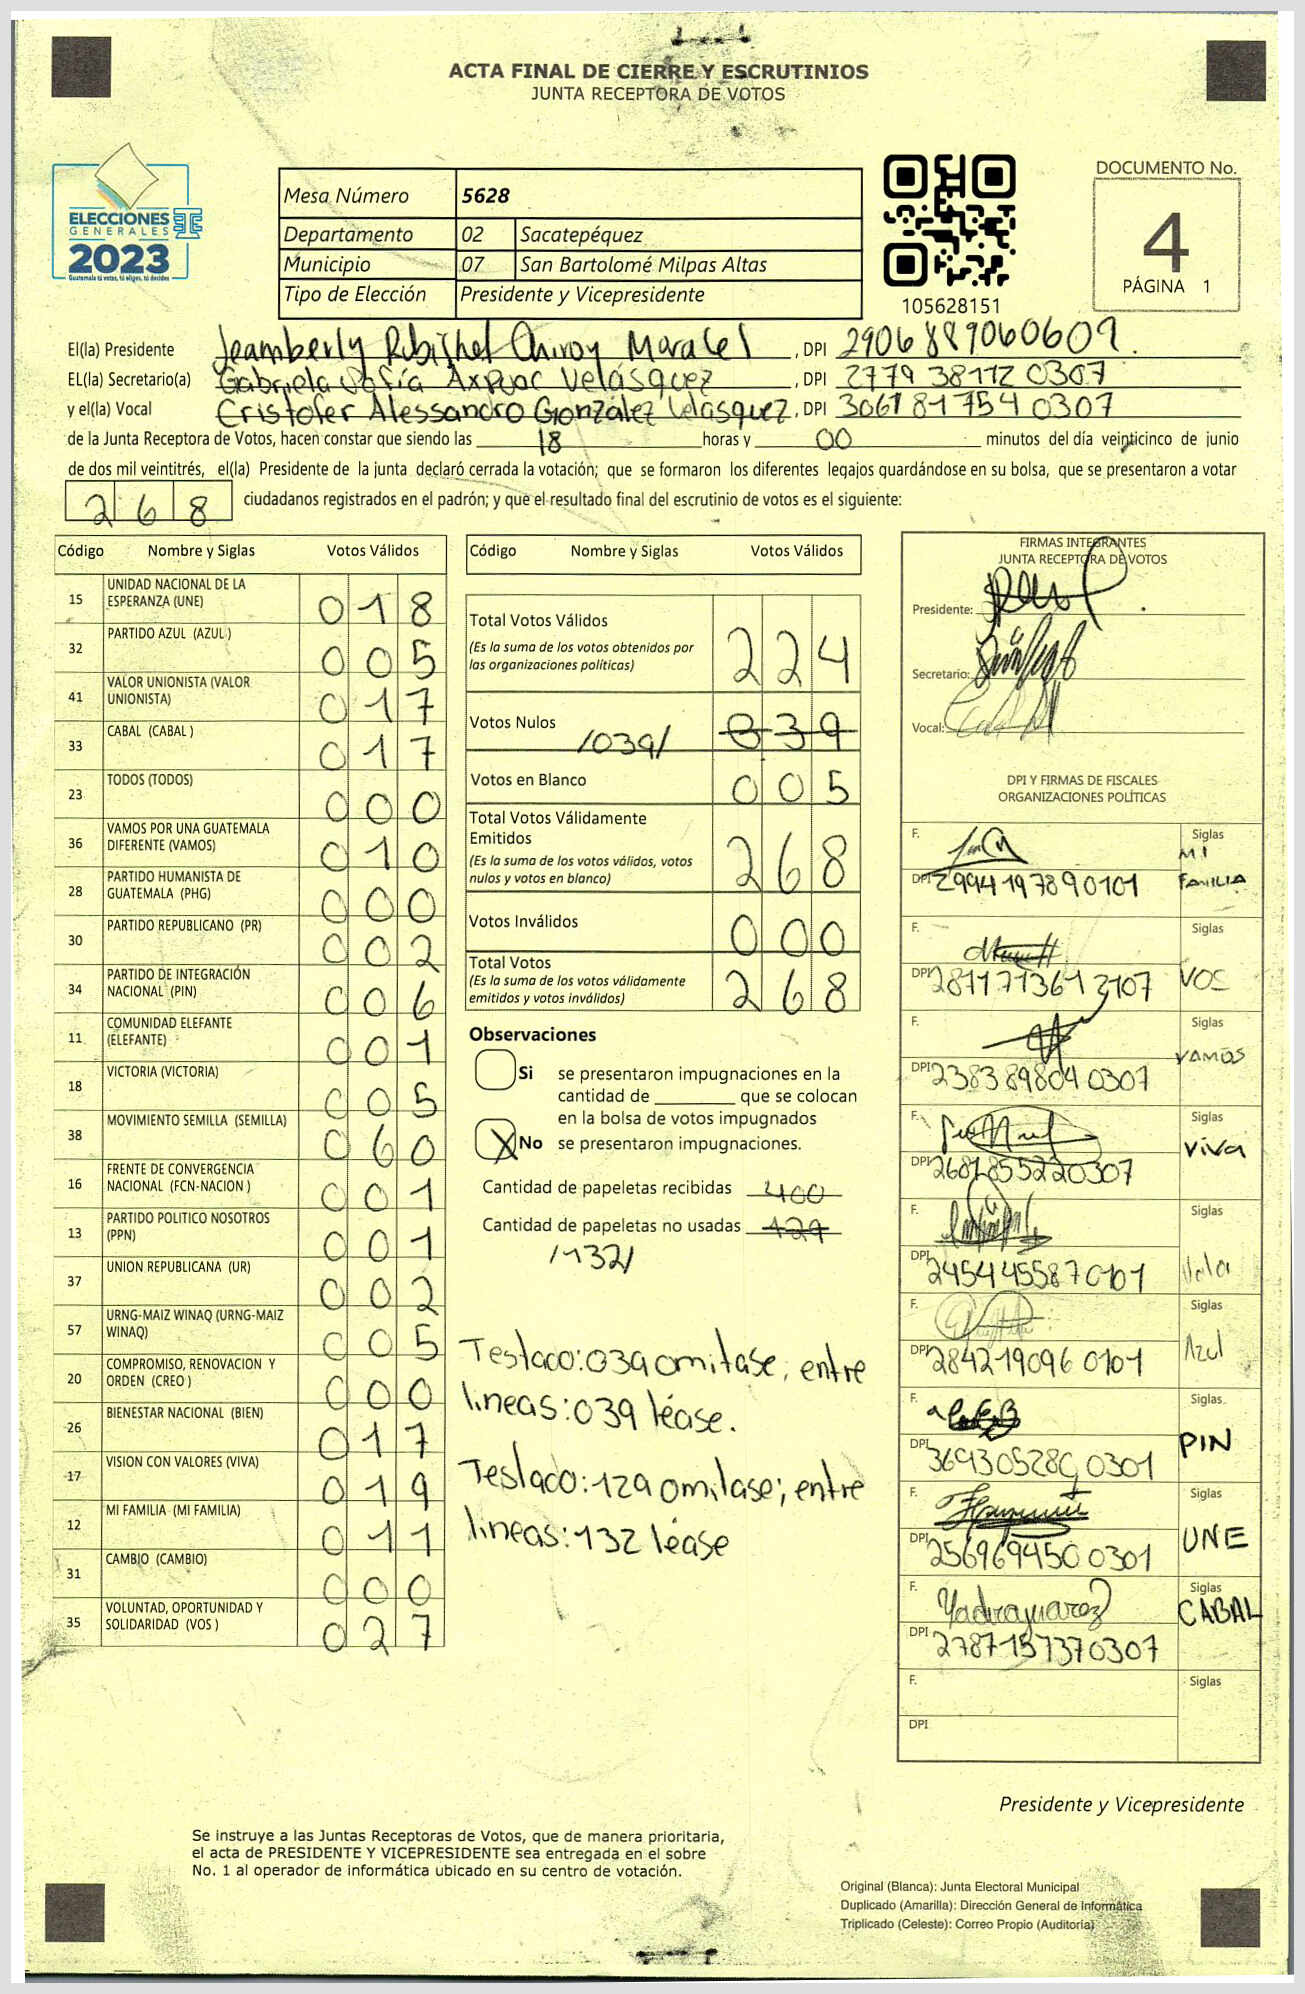 ACTA FINAL DE CIERRE Y ESCRUTINIOS
JUNTA RECEPTORA DE VOTOS
ELECCIONES
GENERALES
2023
Guatemala tú votas, tú eliges, tú decides
Mesa Número 5628
Departamento 02 Sacatepéquez
Municipio 07 San Bartolomé Milpas Altas
Tipo de Elección Presidente y Vicepresidente
105628151
DOCUMENTO No.
4
PÁGINA 1
El(la) Presidente Jeamberly Chiroy , DPI 2906889060609.
EL(la) Secretario(a) Gabriela Sofía Axpuac Velásquez , DPI 2779 38112 0307
y el(la) Vocal Cristofer Alessandro González Velásquez, DPI 3061 81754 0307
de la Junta Receptora de Votos, hacen constar que siendo las 18 horas y 00 minutos del día veinticinco de junio
de dos mil veintitrés, el(la) Presidente de la junta declaró cerrada la votación; que se formaron los diferentes legajos guardándose en su bolsa, que se presentaron a votar
268 ciudadanos registrados en el padrón; y que el resultado final del escrutinio de votos es el siguiente:
Código Nombre y Siglas Votos Válidos
15 UNIDAD NACIONAL DE LA
ESPERANZA (UNE) 018
32 PARTIDO AZUL (AZUL ) 005
41 VALOR UNIONISTA (VALOR
UNIONISTA) 017
33 CABAL (CABAL ) 017
23 TODOS (TODOS) 000
36 VAMOS POR UNA GUATEMALA
DIFERENTE (VAMOS) 010
28 PARTIDO HUMANISTA DE
GUATEMALA (PHG) 000
30 PARTIDO REPUBLICANO (PR) 002
34 PARTIDO DE INTEGRACIÓN
NACIONAL (PIN) 006
11 COMUNIDAD ELEFANTE
(ELEFANTE) 001
18 VICTORIA (VICTORIA) 005
38 MOVIMIENTO SEMILLA (SEMILLA) 060
16 FRENTE DE CONVERGENCIA
NACIONAL (FCN-NACION ) 001
13 PARTIDO POLITICO NOSOTROS
(PPN) 001
37 UNION REPUBLICANA (UR) 002
57 URNG-MAIZ WINAQ (URNG-MAIZ
WINAQ) 005
20 COMPROMISO, RENOVACION Y
ORDEN (CREO ) 000
26 BIENESTAR NACIONAL (BIEN) 017
17 VISION CON VALORES (VIVA) 019
12 MI FAMILIA (MI FAMILIA) 011
31 CAMBIO (CAMBIO) 000
35 VOLUNTAD, OPORTUNIDAD Y
SOLIDARIDAD (VOS ) 027
Código Nombre y Siglas Votos Válidos
Total Votos Válidos 224
(Es la suma de los votos obtenidos por
las organizaciones políticas)
Votos Nulos /039/ 039
Votos en Blanco 005
Total Votos Válidamente
Emitidos 268
(Es la suma de los votos válidos, votos
nulos y votos en blanco)
Votos Inválidos 000
Total Votos 268
(Es la suma de los votos válidamente
emitidos y votos inválidos)
Observaciones
Si se presentaron impugnaciones en la
cantidad de ________ que se colocan
en la bolsa de votos impugnados
X No se presentaron impugnaciones.
Cantidad de papeletas recibidas 400
Cantidad de papeletas no usadas 129
/132/
Testado: 039 omitase; entre
lineas: 039 léase.
Testado: 129 omitase; entre
lineas: 132 léase
FIRMAS INTEGRANTES
JUNTA RECEPTORA DE VOTOS
Presidente:
Secretario:
Vocal:
DPI Y FIRMAS DE FISCALES
ORGANIZACIONES POLÍTICAS
F. Siglas
MI
DPI 2994197890101 FAMILIA
F. Siglas
DPI 2811713613107 VOS
F. Siglas
DPI 2383898040307 VAMOS
F. Siglas
DPI 2687855220307 VIVA
F. Siglas
DPI 2454455870101
F. Siglas
DPI 2842190960101 Azul
F. Siglas
DPI 3693052800301 PIN
F. Siglas
DPI 2569694500301 UNE
F. Yadira Juarez Siglas
CABAL
DPI 2787157370307
F. Siglas
DPI
Presidente y Vicepresidente
Se instruye a las Juntas Receptoras de Votos, que de manera prioritaria,
el acta de PRESIDENTE Y VICEPRESIDENTE sea entregada en el sobre
No. 1 al operador de informática ubicado en su centro de votación.
Original (Blanca): Junta Electoral Municipal
Duplicado (Amarilla): Dirección General de Informática
Triplicado (Celeste): Correo Propio (Auditoría)